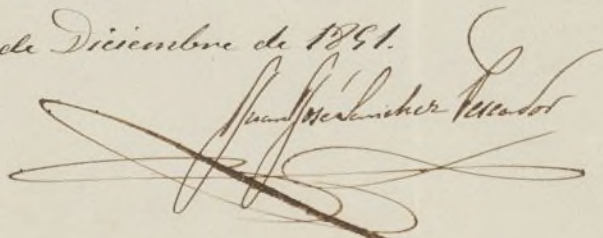 de Diciembre de 1851.
Juan José Sanchez Pescador